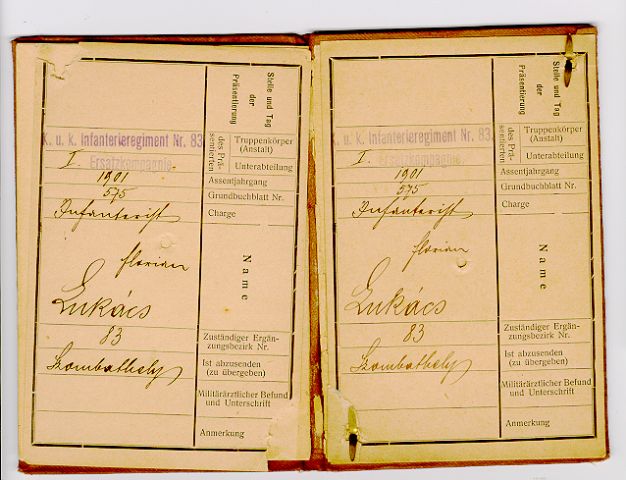 Stelle und Tag
der
Präsentierung
K. u. k. Infanterieregiment Nr. 83
I. Ersatzkompagnie
des Prä-
sentierten
Truppenkörper
(Anstalt)
Unterabteilung
1901
Assentjahrgang
575
Grundbuchblatt Nr.
Infanterist
Charge
florian
Lukács
Name
83
Zuständiger Ergän-
zungsbezirk Nr.
Szombathely
Ist abzusenden
(zu übergeben)
Militärärztlicher Befund
und Unterschrift
Anmerkung
Stelle und Tag
der
Präsentierung
K. u. k. Infanterieregiment Nr. 83
I. Ersatzkompagnie
des Prä-
sentierten
Truppenkörper
(Anstalt)
Unterabteilung
1901
Assentjahrgang
575
Grundbuchblatt Nr.
Infanterist
Charge
florian
Lukács
Name
83
Zuständiger Ergän-
zungsbezirk Nr.
Szombathely
Ist abzusenden
(zu übergeben)
Militärärztlicher Befund
und Unterschrift
Anmerkung